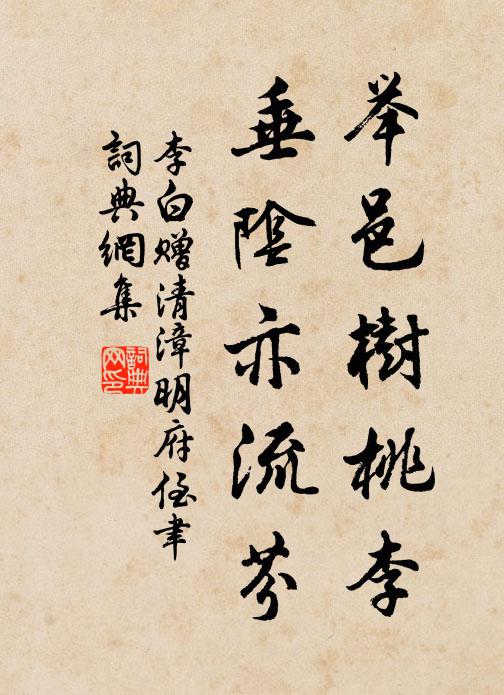 举邑樹桃李
垂陰亦流芬
李白赠清漳明府侄聿
詞典網集
詞典网印